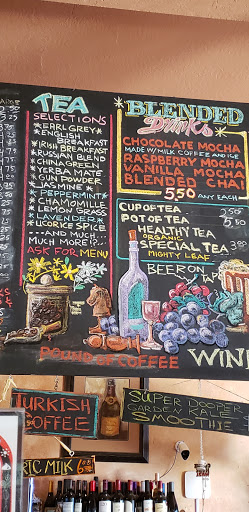 TEA
SELECTIONS
*EARL GREY*
*ENGLISH
BREAKFAST
*IRISH BREAKFAST
*RUSSIAN BLEND
*CHINA GREEN
*YERBA MATE
*GUN POWDER
*JASMINE*
*PEPPERMINT
*CHAMOMILE
*LEMON GRASS
*LAVENDER*
*LICORICE SPICE
...AND MUCH...
MUCH MORE!?...
ASK FOR MENU
BLENDED
Drinks
CHOCOLATE MOCHA
MADE W/ MILK COFFEE AND ICE
RASPBERRY MOCHA
VANILLA MOCHA
BLENDED CHAI
5.50 ANY EACH
CUP OF TEA
POT OF TEA
HEALTHY TEA
ORGANIC
SPECIAL TEA
MIGHTY LEAF
BEER ON
TAP
POUND OF COFFEE
WIN
TURKISH
COFFEE
SUPER DOOPER
GARDEN KALE
SMOOTHIE
RIC MILK